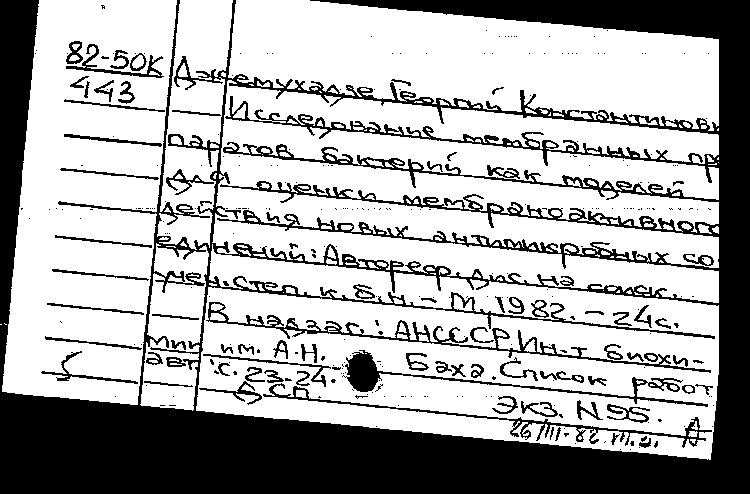 82-50К Джемухадзе, Георгий Константинович
443 Исследование мембранных пре
паратов бактерий как моделей
для оценки мембраноактивного
действия новых антимикробных со
единений: Автореф. дис. на соиск.
учен. степ. к. б. н. - М., 1982. - 24с.
В надзаг.: АН СССР, Ин-т биохи-
мии им. А.Н. Баха. Список работ
авт.: с. 23-24.
ДСП Экз. N 95.
26/III-82 М.